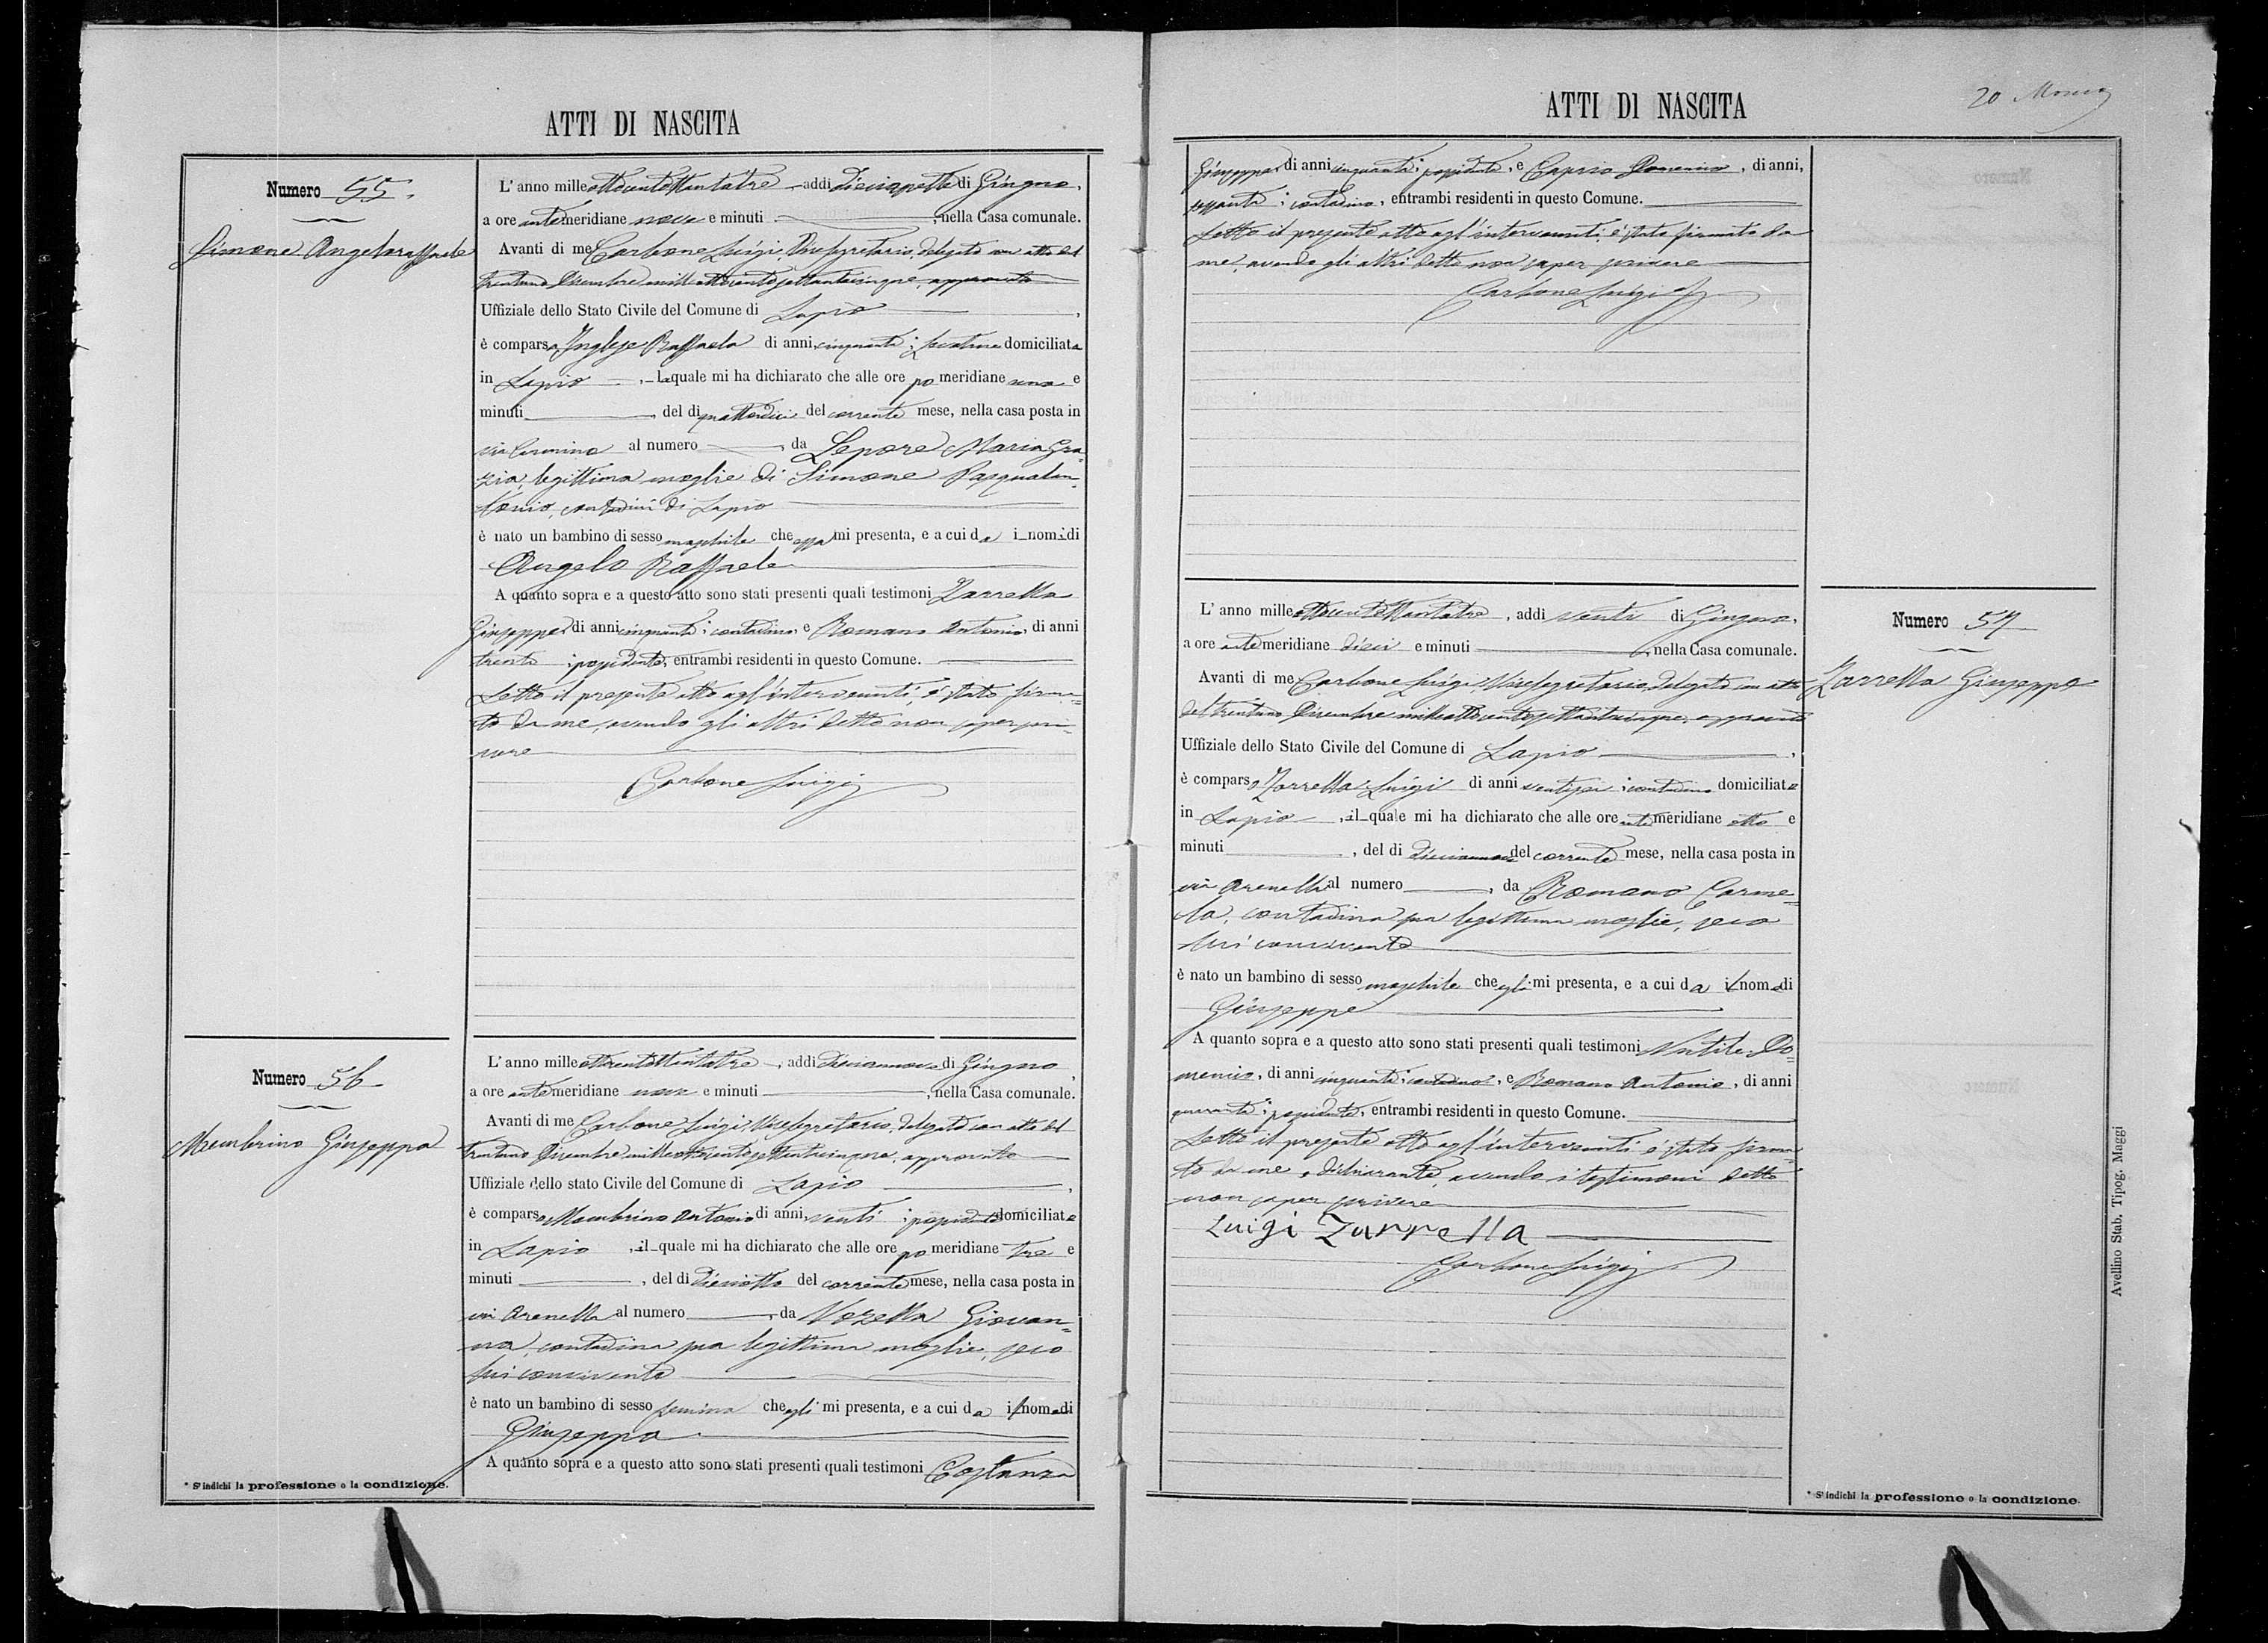 ATTI DI NASCITA
Numero 55.
Simone Angeloraffaele
L'anno mille ottocentottantatre addì diciassette di Giugno,
a ore antimeridiane nove e minuti , nella Casa comunale.
Avanti di me Carbone Luigi, Vicesegretario, delegato con atto del
trentuno Dicembre mille ottocentosettantacinque, approvato
Uffiziale dello Stato Civile del Comune di Lapio ,
è comparsa Inglese Raffaela di anni cinquanta; domiciliata
in Lapio , La quale mi ha dichiarato che alle ore pomeridiane una e
minuti , del dì quattordici del corrente mese, nella casa posta in
via al numero , da Lepore Maria Gra-
zia, legittima moglie di Simone Pasqualan-
tonio, contadini di Lapio
è nato un bambino di sesso maschile che essa mi presenta, e a cui da i nomi di
Angelo Raffaele
A quanto sopra e a questo atto sono stati presenti quali testimoni Zarrella
Giuseppe, di anni cinquanta; contadino, e Romano Antonio, di anni
trenta; possidente, entrambi residenti in questo Comune.
Letto il presente atto agl'intervenuti, è stato firma-
to da me, avendo gli altri detto non saper scri-
vere
Carbone Luigi
Numero 56
Membrino Giuseppa
L'anno mille ottocentottantatre , addì diciannove di Giugno ,
a ore antimeridiane nove e minuti , nella Casa comunale.
Avanti di me Carbone Luigi, Vicesegretario, delegato con atto del
trentuno Dicembre mille ottocentosettantacinque, approvato
Uffiziale dello stato Civile del Comune di Lapio ,
è comparso Membrino Antonio di anni venti; possidente domiciliato
in Lapio , il quale mi ha dichiarato che alle ore pomeridiane tre e
minuti , del dì diciotto del corrente mese, nella casa posta in
via Arenella al numero , da Vozella Giovan-
na, contadina sua legittima moglie, seco
lui convivente
è nato un bambino di sesso femina che egli mi presenta, e a cui da il nome di
Giuseppa
A quanto sopra e a questo atto sono stati presenti quali testimoni Costanza
* S'indichi la professione o la condizione.
ATTI DI NASCITA
20
Giuseppe, di anni cinquanta; possidente, e Caprio Domenico, di anni,
sessanta; contadino, entrambi residenti in questo Comune.
Letto il presente atto agl'intervenuti, è stato firmato da
me, avendo gli altri detto non saper scrivere
Carbone Luigi
L'anno mille ottocentottantatre , addì venti di Giugno,
a ore antimeridiane dieci e minuti , nella Casa comunale.
Avanti di me Carbone Luigi Vicesegretario, delegato con atto
del trentuno Dicembre mille ottocentosettantacinque, approvato
Uffiziale dello Stato Civile del Comune di Lapio ,
è comparso Zarrella Luigi di anni ventisei; contadino domiciliato
in Lapio , il quale mi ha dichiarato che alle ore antimeridiane otto e
minuti , del dì diciannove del corrente mese, nella casa posta in
via Arenella al numero , da Romano Carme-
la, contadina sua legittima moglie, seco
lui convivente
è nato un bambino di sesso maschile che egli mi presenta, e a cui da il nome di
Giuseppe
A quanto sopra e a questo atto sono stati presenti quali testimoni Do-
menico, di anni cinquanta; contadino, e Romano Antonio, di anni
quaranta; possidente, entrambi residenti in questo Comune.
Letto il presente atto agl'intervenuti è stato firma-
to da me, e dichiarante, avendo i testimoni detto
non saper scrivere
Luigi Zarrella
Carbone Luigi
Numero 57
Zarrella Giuseppe
* S'indichi la professione o la condizione.
Avellino Stab. Tipog. Maggi